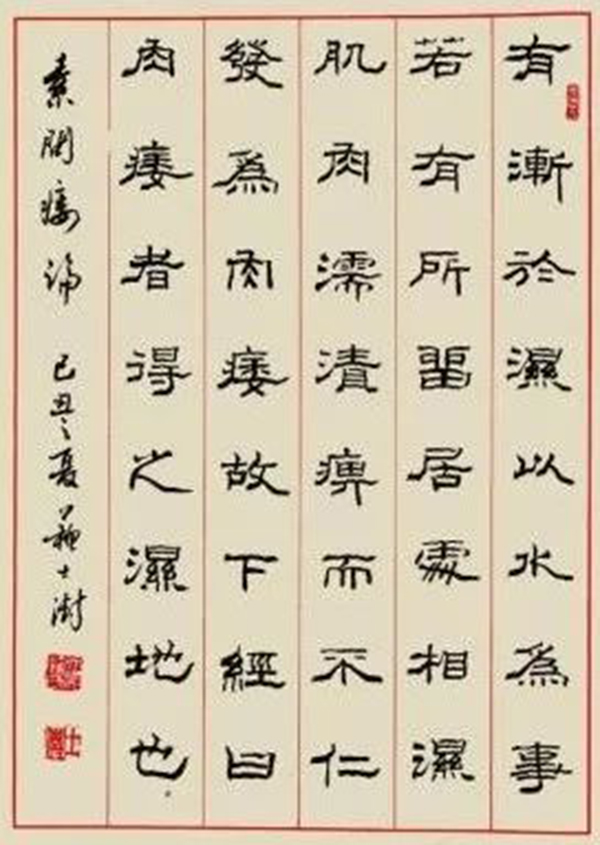 有漸於濕以水為事
若有所留居處相濕
肌肉濡漬痹而不仁
發為肉痿故下經曰
肉痿者得之濕地也
素問痿論 己丑之夏 蘇士澍